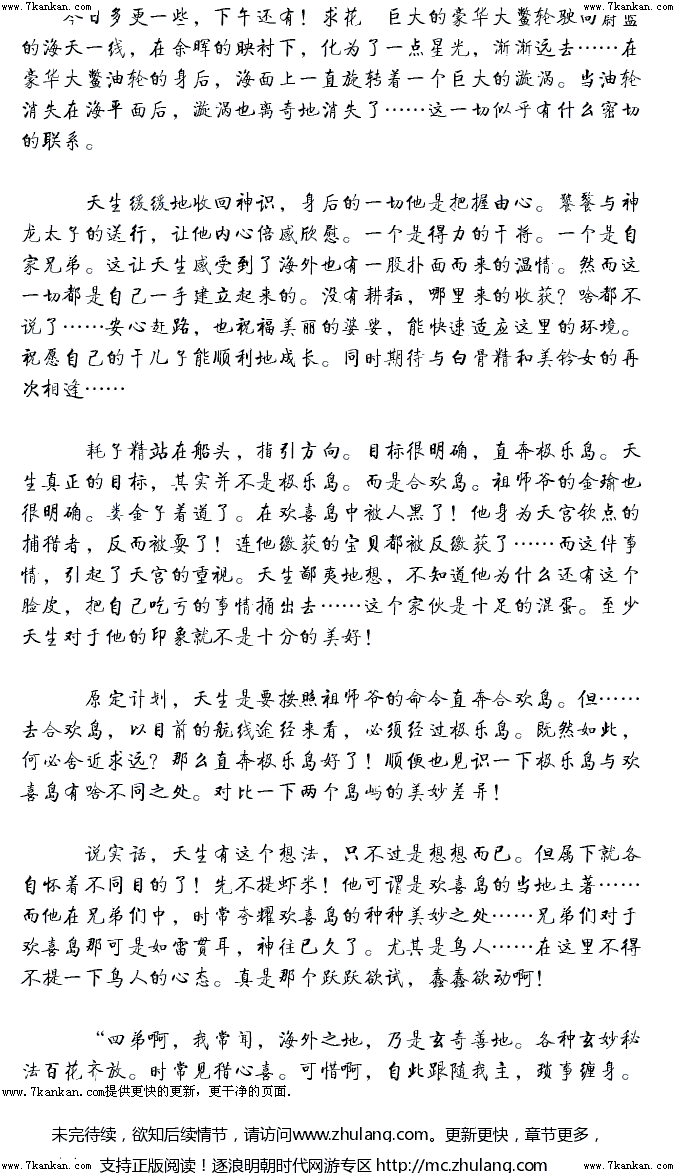 www.7kankan.com www.7kankan.com
今日多更一些，下午还有！求花 巨大的豪华大鳖轮驶向蔚蓝
的海天一线，在余晖的映衬下，化为了一点星光，渐渐远去……在
豪华大鳖油轮的身后，海面上一直旋转着一个巨大的漩涡。当油轮
消失在海平面后，漩涡也离奇地消失了……这一切似乎有什么密切
的联系。
天生缓缓地收回神识，身后的一切他是把握由心。饕餮与神
龙太子的送行，让他内心倍感欣慰。一个是得力的干将。一个是自
家兄弟。这让天生感受到了海外也有一股扑面而来的温情。然而这
一切都是自己一手建立起来的。没有耕耘，哪里来的收获？啥都不
说了……安心赶路，也祝福美丽的婆娑，能快速适应这里的环境。
祝愿自己的干儿子能顺利地成长。同时期待与白骨精和美铃女的再
次相逢……
耗子精站在船头，指引方向。目标很明确，直奔极乐岛。天
生真正的目标，其实并不是极乐岛。而是合欢岛。祖师爷的金瑜也
很明确。娄金子着道了。在欢喜岛中被人黑了！他身为天宫钦点的
捕猎者，反而被耍了！连他缴获的宝贝都被反缴获了……而这件事
情，引起了天宫的重视。天生鄙夷地想，不知道他为什么还有这个
脸皮，把自己吃亏的事情捅出去……这个家伙是十足的混蛋。至少
天生对于他的印象就不是十分的美好！
原定计划，天生是要按照祖师爷的命令直奔合欢岛。但……
去合欢岛，以目前的航线途经来看，必须经过极乐岛。既然如此，
何必舍近求远？那么直奔极乐岛好了！顺便也见识一下极乐岛与欢
喜岛有啥不同之处。对比一下两个岛屿的美妙差异！
说实话，天生有这个想法，只不过是想想而已。但属下就各
自怀着不同目的了！先不提虾米！他可谓是欢喜岛的当地土著……
而他在兄弟们中，时常夸耀欢喜岛的种种美妙之处……兄弟们对于
欢喜岛那可是如雷贯耳，神往已久了。尤其是鸟人……在这里不得
不提一下鸟人的心态。真是那个跃跃欲试，蠢蠢欲动啊！
“四弟啊，我常闻，海外之地，乃是玄奇善地。各种玄妙秘
法百花齐放。时常见猎心喜。可惜啊，自此跟随我主，琐事缠身。
www.7kankan.com提供更快的更新，更干净的页面.
未完待续，欲知后续情节，请访问www.zhulang.com。更新更快，章节更多，
支持正版阅读！逐浪明朝时代网游专区 http://mc.zhulang.com
www.7kankan.com www.7kankan.com